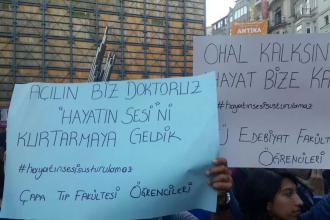 ANTİKA
AÇILIN BİZ DOKTORUZ
"HAYATIN SESİ"Nİ
KURTARMAYA GELDİK
#hayatınsesisusturulamaz
ÇAPA TIP FAKÜLTESİ ÖĞRENCİLERİ
OHAL KALKSIN
HAYAT BİZE KA
#hayatinsesisusturulamaz
EDEBİYAT FAKÜL
ÖĞRENCİLERİ